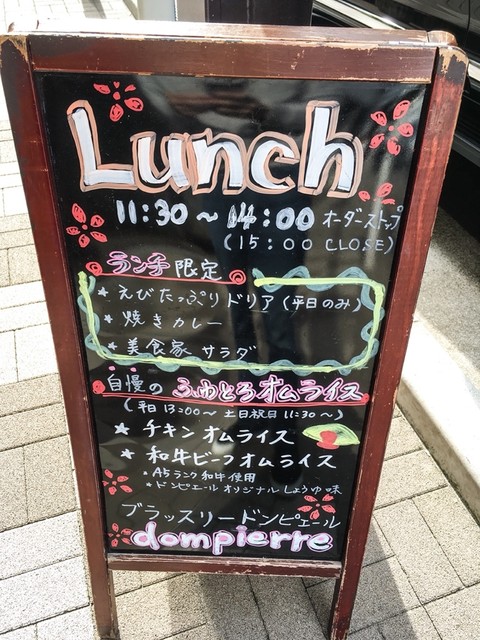 Lunch
11:30～14:00 オーダーストップ
(15:00 CLOSE)
ランチ限定
★ えびたっぷりドリア(平日のみ)
★ 焼きカレー
★ 美食家サラダ
自慢の ふわとろオムライス
(平日 13:00～ 土日祝日 11:30～)
★ チキンオムライス
★ 和牛ビーフオムライス
★A5ランク和牛使用
★ドンピエールオリジナルしょうゆ味
ブラッスリードンピエール
dompierre